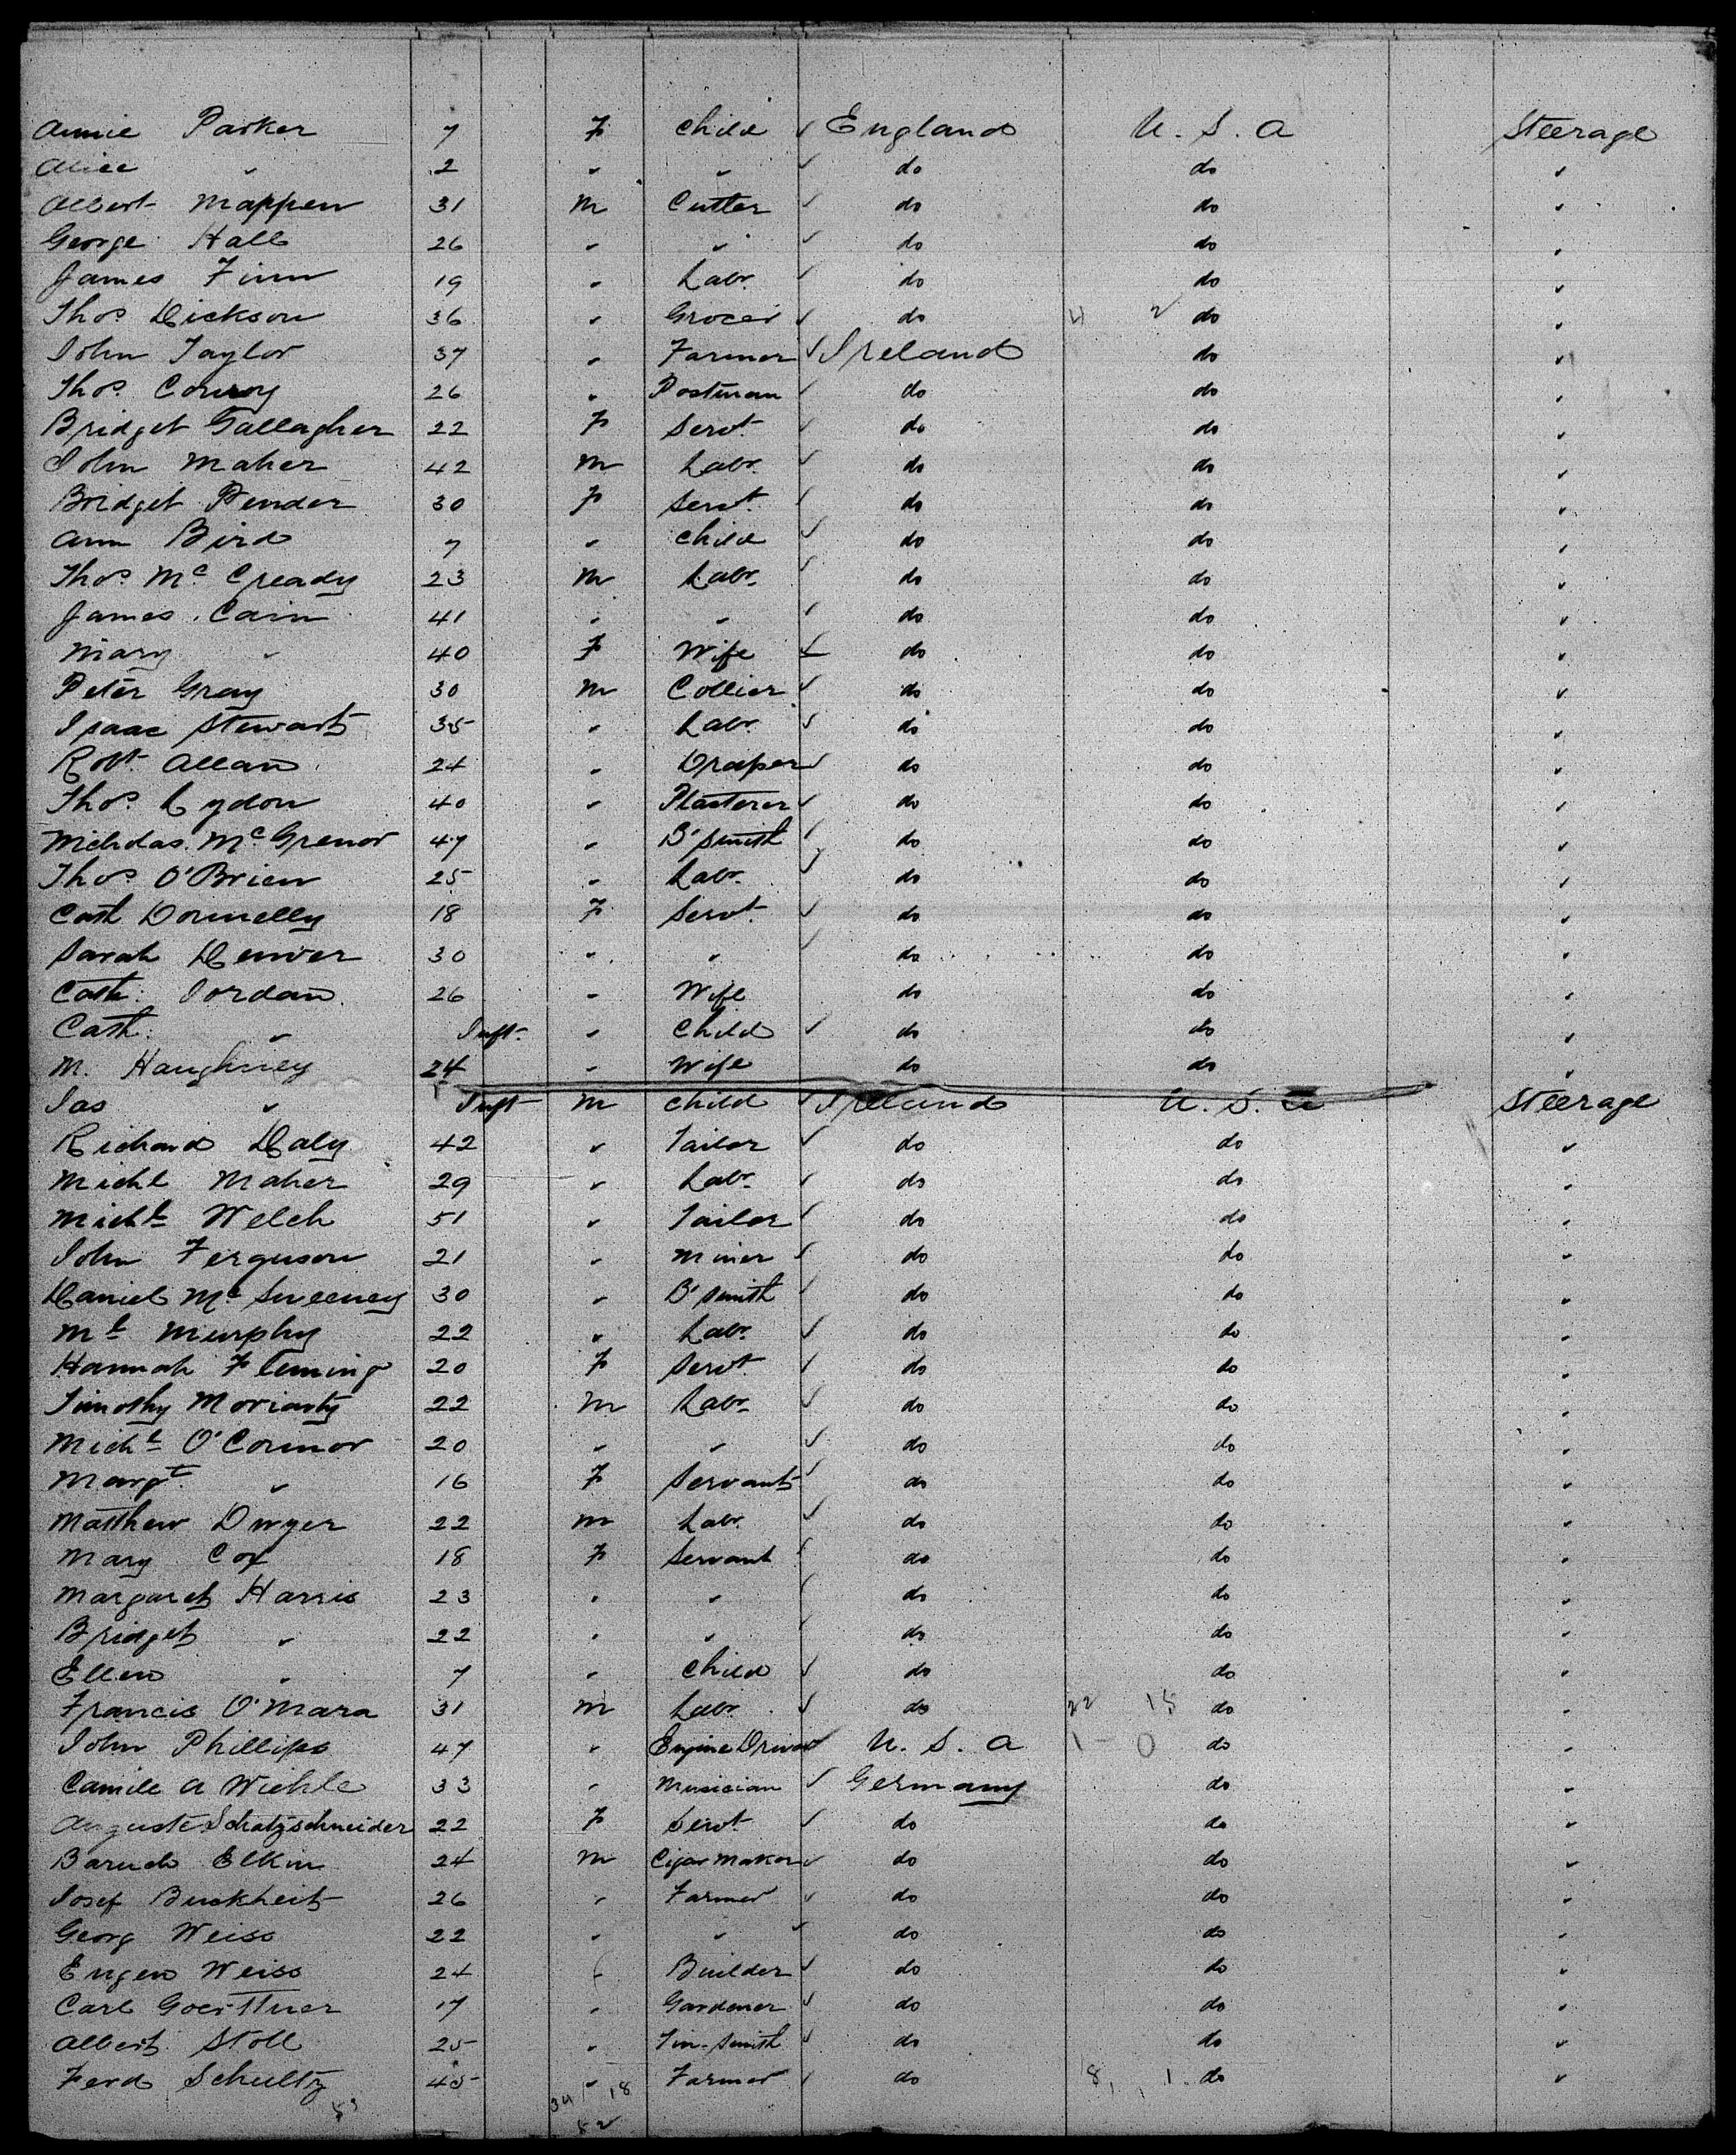 Annie Parker 7 F Child ✓ England U. S. A Steerage
Alice " 2 " " ✓ do do "
Albert Mappen 31 M Cutler ✓ do do "
George Hall 26 " " ✓ do do "
James Finn 19 " Labr. ✓ do do "
Thos. Dickson 36 " Grocer ✓ do 4 2 do "
John Taylor 37 " Farmer ✓ Ireland do "
Thos. Conroy 26 " Postman ✓ do do "
Bridget Gallagher 22 F Servt. ✓ do do "
John Maher 42 M Labr. ✓ do do "
Bridget Pender 30 F Servt. ✓ do do "
Ann Bird 7 " Child ✓ do do "
Thos. Mc Cready 23 M Labr. ✓ do do "
James Cain 41 " " ✓ do do "
Mary " 40 F Wife ✓ do do "
Peter Gray 30 M Collier ✓ do do "
Isaac Stewart 35 " Labr. ✓ do do "
Robt. Allan 24 " Draper ✓ do do "
Thos. Lydon 40 " Plasterer ✓ do do "
Nicholas Mc Grenor 47 " B'smith ✓ do do "
Thos. O'Brien 25 " Labr. ✓ do do "
Cath Donnelly 18 F Servt. ✓ do do "
Sarah Denver 30 " " ✓ do do "
Cath. Jordan 26 " Wife do do "
Cath. " Inft. " Child ✓ do do "
M. Haughney 24 " Wife do do "
Jas " Inft M Child ✓ Ireland U. S. A Steerage
Richard Daly 42 " Tailor ✓ do do "
Michl Maher 29 " Labr. ✓ do do "
Michl Welch 51 " Tailor ✓ do do "
John Ferguson 21 " Miner ✓ do do "
Daniel Mc Sweeney 30 " B'smith ✓ do do "
Ml Murphy 22 " Labr. ✓ do do "
Hannah Fleming 20 F Servt. ✓ do do "
Timothy Moriarty 22 M Labr. ✓ do do "
Michl O'Connor 20 " " ✓ do do "
Margt. " 16 F Servant ✓ do do "
Matthew Dwyer 22 M Labr. ✓ do do "
Mary Cox 18 F Servant ✓ do do "
Margaret Harris 23 " " ✓ do do "
Bridget " 22 " " ✓ do do "
Ellen " 7 " Child ✓ do do "
Francis O'Mara 31 M Labr. ✓ do 22 15 do "
John Phillips 47 " Engine Driver ✓ U. S. A 1 - 0 do "
Camile A Wiehle 33 " Musician ✓ Germany do "
Auguste Schatzschneider 22 F Servt. ✓ do do "
Baruch Elkin 24 M Cigar Maker ✓ do do "
Josef Buckheit 26 " Farmer ✓ do do "
Georg Weiss 22 " " ✓ do do "
Eugen Weiss 24 " Builder ✓ do do "
Carl Goerttner 17 " Gardener ✓ do do "
Albert Stoll 25 " Tin-Smith ✓ do do "
Ferd Schultz 45 " Farmer ✓ do 8 1 do "
53 34 18
52